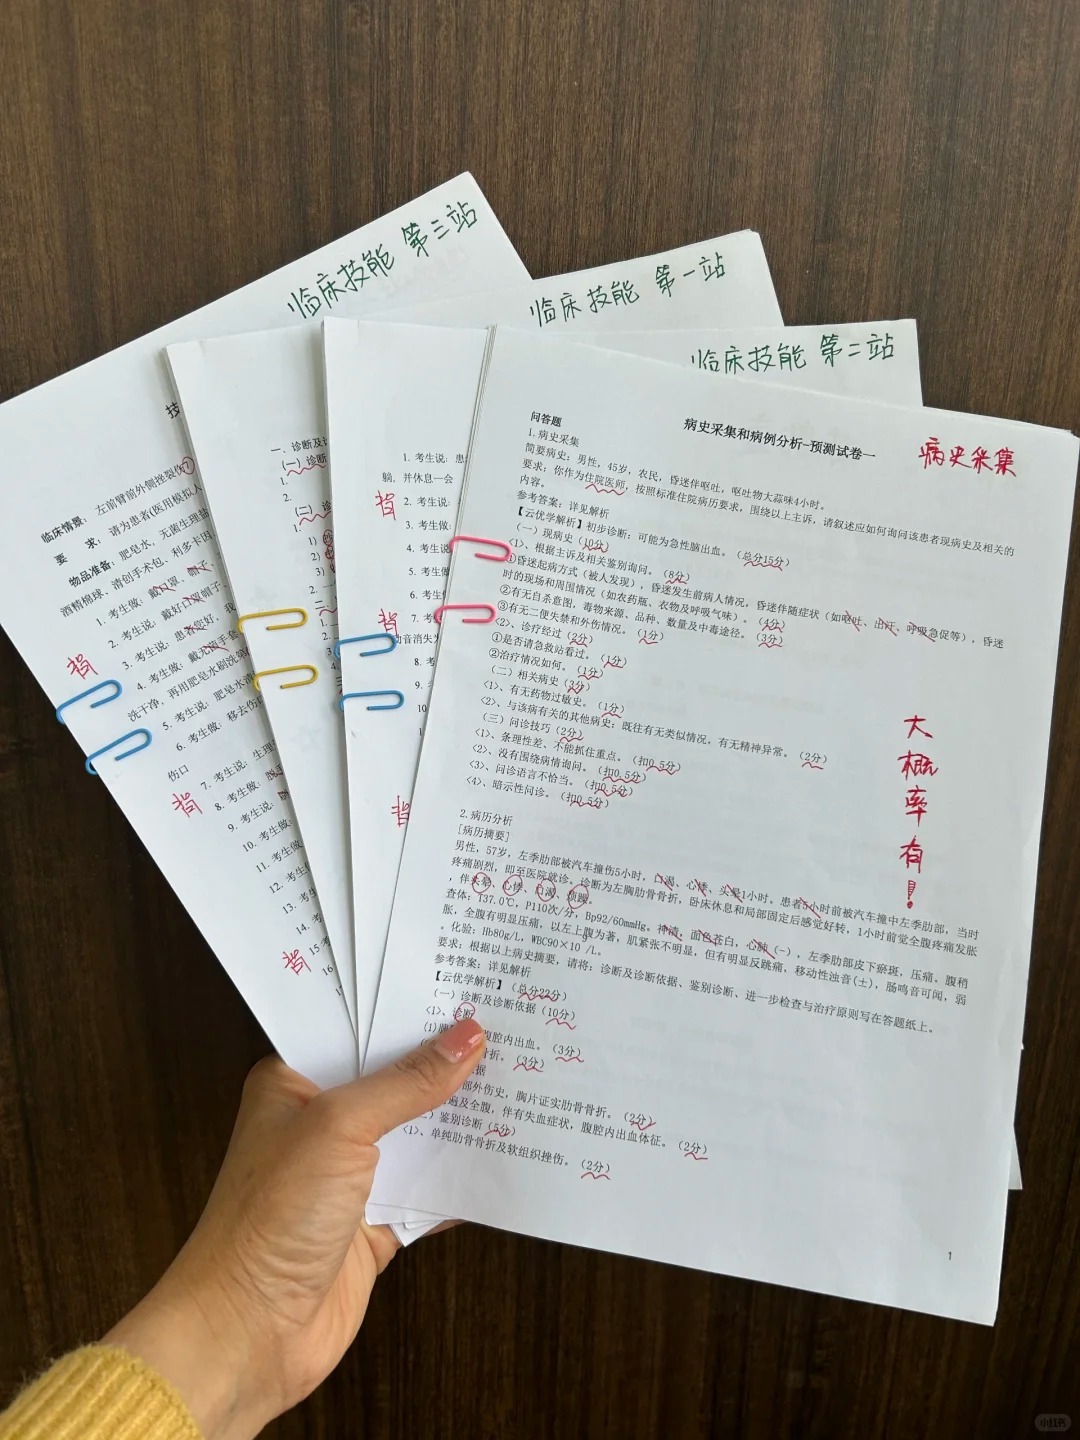 临床技能 第三站
临床技能 第一站
临床技能 第二站
技
临床情景：左前臂前外侧挫裂伤
要 求：请为患者(医用模拟人
物品准备：肥皂水，无菌生理盐
酒精棉球、清创手术包，利多卡因，
1. 考生做：戴口罩、帽子、
2. 考生说，戴好口罩帽子、
3. 考生说：患者您好，我
4. 考生做：戴无菌手套
洗干净，再用肥皂水刷洗
5. 考生说：肥皂水清
6. 考生做：移去伤口
伤口
7. 考生说：生理
8. 考生做：脱
9. 考生说：
10. 考生做：
11. 考生做
12. 考生
13. 考生
14. 考
15 考
16
背
背
背
一、诊断及诊
（一）诊断
1.
2.
（二）诊
1.
1)
2)
3)
2.
1. 考生说：患
躺，并休息一会
2. 考生说：
3. 考生做：
4. 考生说
5. 考生做
6. 考生
7. 考
动音消失
8. 考
9.
10
背
背
背
病史采集和病例分析-预测试卷一
病史采集
问答题
1. 病史采集
简要病史：男性，45岁，农民，昏迷伴呕吐，呕吐物大蒜味4小时。
要求：你作为住院医师，按照标准住院病历要求，围绕以上主诉，请叙述应如何询问该患者现病史及相关的
内容。
参考答案：详见解析
【云优学解析】初步诊断：可能为急性脑出血。（总分15分）
（一）现病史（10分）
<1>、根据主诉及相关鉴别询问。（8分）
①昏迷起病方式（被人发现），昏迷发生前病人情况，昏迷伴随症状（如呕吐、出汗、呼吸急促等），昏迷
时的现场和周围情况（如农药瓶、衣物及呼吸气味）。（4分）
②有无自杀意图，毒物来源、品种，数量及中毒途径。（3分）
③有无二便失禁和外伤情况。（1分）
<2>、诊疗经过（2分）
①是否请急救站看过。（1分）
②治疗情况如何。（1分）
（二）相关病史（3分）
<1>、有无药物过敏史。（1分）
<2>、与该病有关的其他病史：既往有无类似情况，有无精神异常。（2分）
（三）问诊技巧（2分）
<1>、条理性差、不能抓住重点。（扣0.5分）
<2>、没有围绕病情询问。（扣0.5分）
<3>、问诊语言不恰当。（扣0.5分）
<4>、暗示性问诊。（扣0.5分）
大概率有！
2. 病历分析
[病历摘要]
男性，57岁，左季肋部被汽车撞伤5小时，口渴、心悸、头晕1小时。患者5小时前被汽车撞中左季肋部，当时
疼痛剧烈，即至医院就诊。诊断为左胸肋骨骨折，卧床休息和局部固定后感觉好转，1小时前觉全腹疼痛发胀
，伴头晕、心悸、口渴、烦躁。
查体：T37.0℃，P110次/分，Bp92/60mmHg。神清，面色苍白，心肺（-），左季肋部皮下瘀斑，压痛。腹稍
胀，全腹有明显压痛，以左上腹为著，肌紧张不明显，但有明显反跳痛，移动性浊音(±)，肠鸣音可闻，弱
。化验：Hb80g/L，WBC90×10⁹/L。
要求：根据以上病史摘要，请将：诊断及诊断依据、鉴别诊断、进一步检查与治疗原则写在答题纸上。
参考答案：详见解析
【云优学解析】（总分22分）
（一）诊断及诊断依据（10分）
<1>、诊断
(1)脾 腹腔内出血。（3分）
骨折。（3分）
据
部外伤史，胸片证实肋骨骨折。（2分）
遍及全腹，伴有失血症状，腹腔内出血体征。（2分）
）鉴别诊断（5分）
<1>、单纯肋骨骨折及软组织挫伤。（2分）
1
小红书